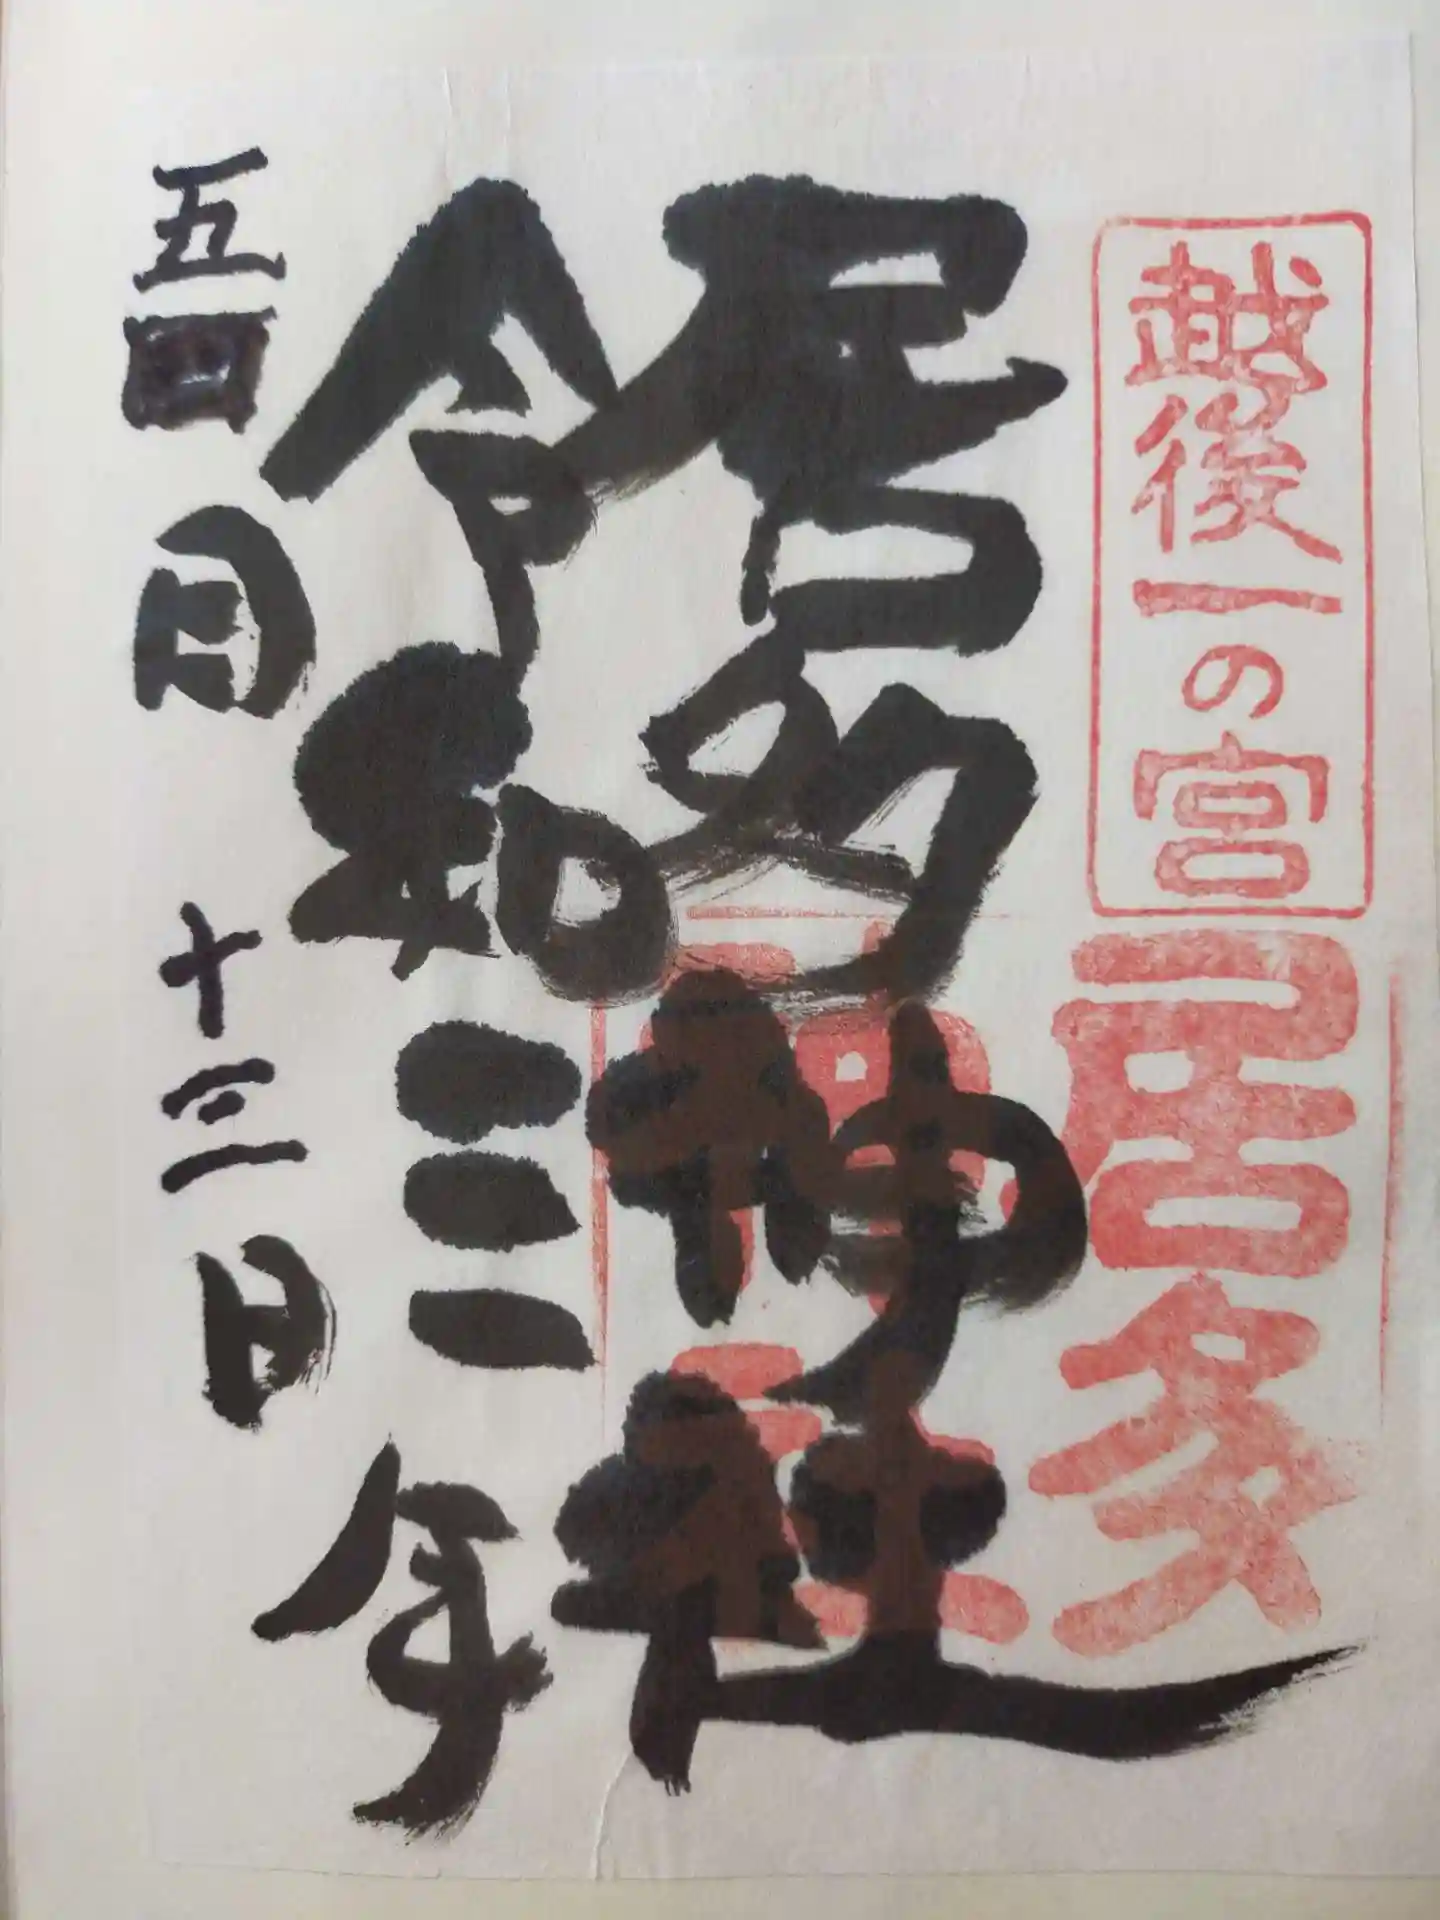 越後一の宮
居多
神社
居多神社
令和三年
五四月十三日